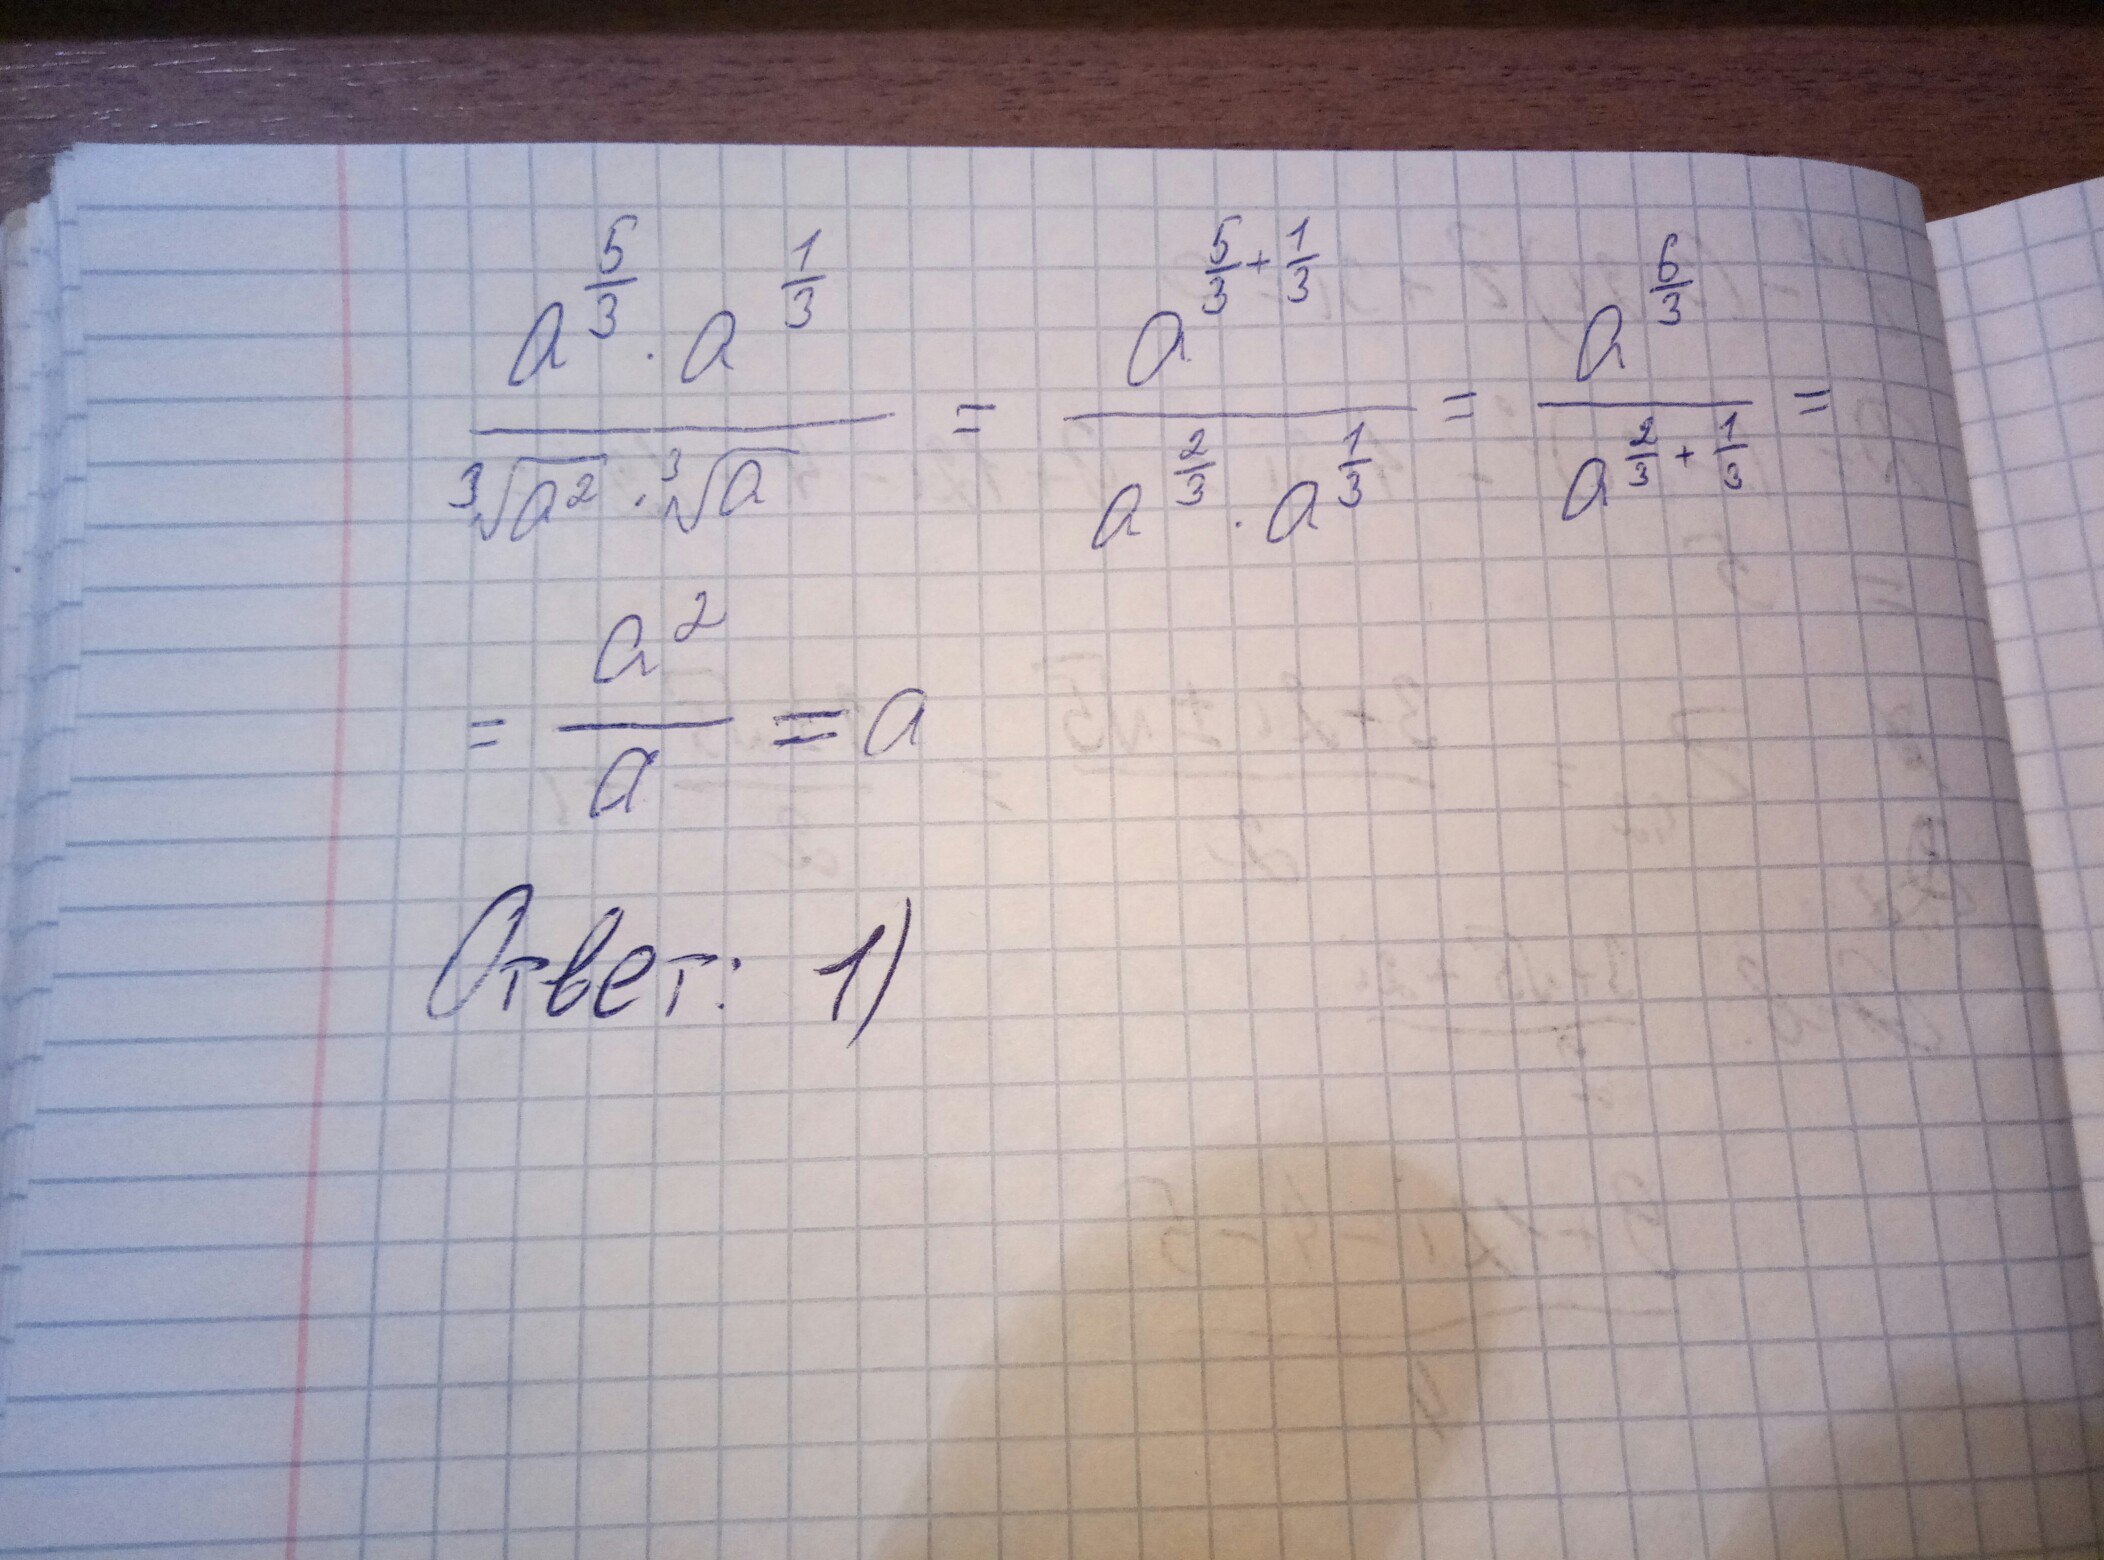 a^{5/3} · a^{1/3} / ∛a² · ∛a = a^{5/3 + 1/3} / a^{2/3} · a^{1/3} = a^{6/3} / a^{2/3 + 1/3} =
= a² / a = a
Ответ: 1)